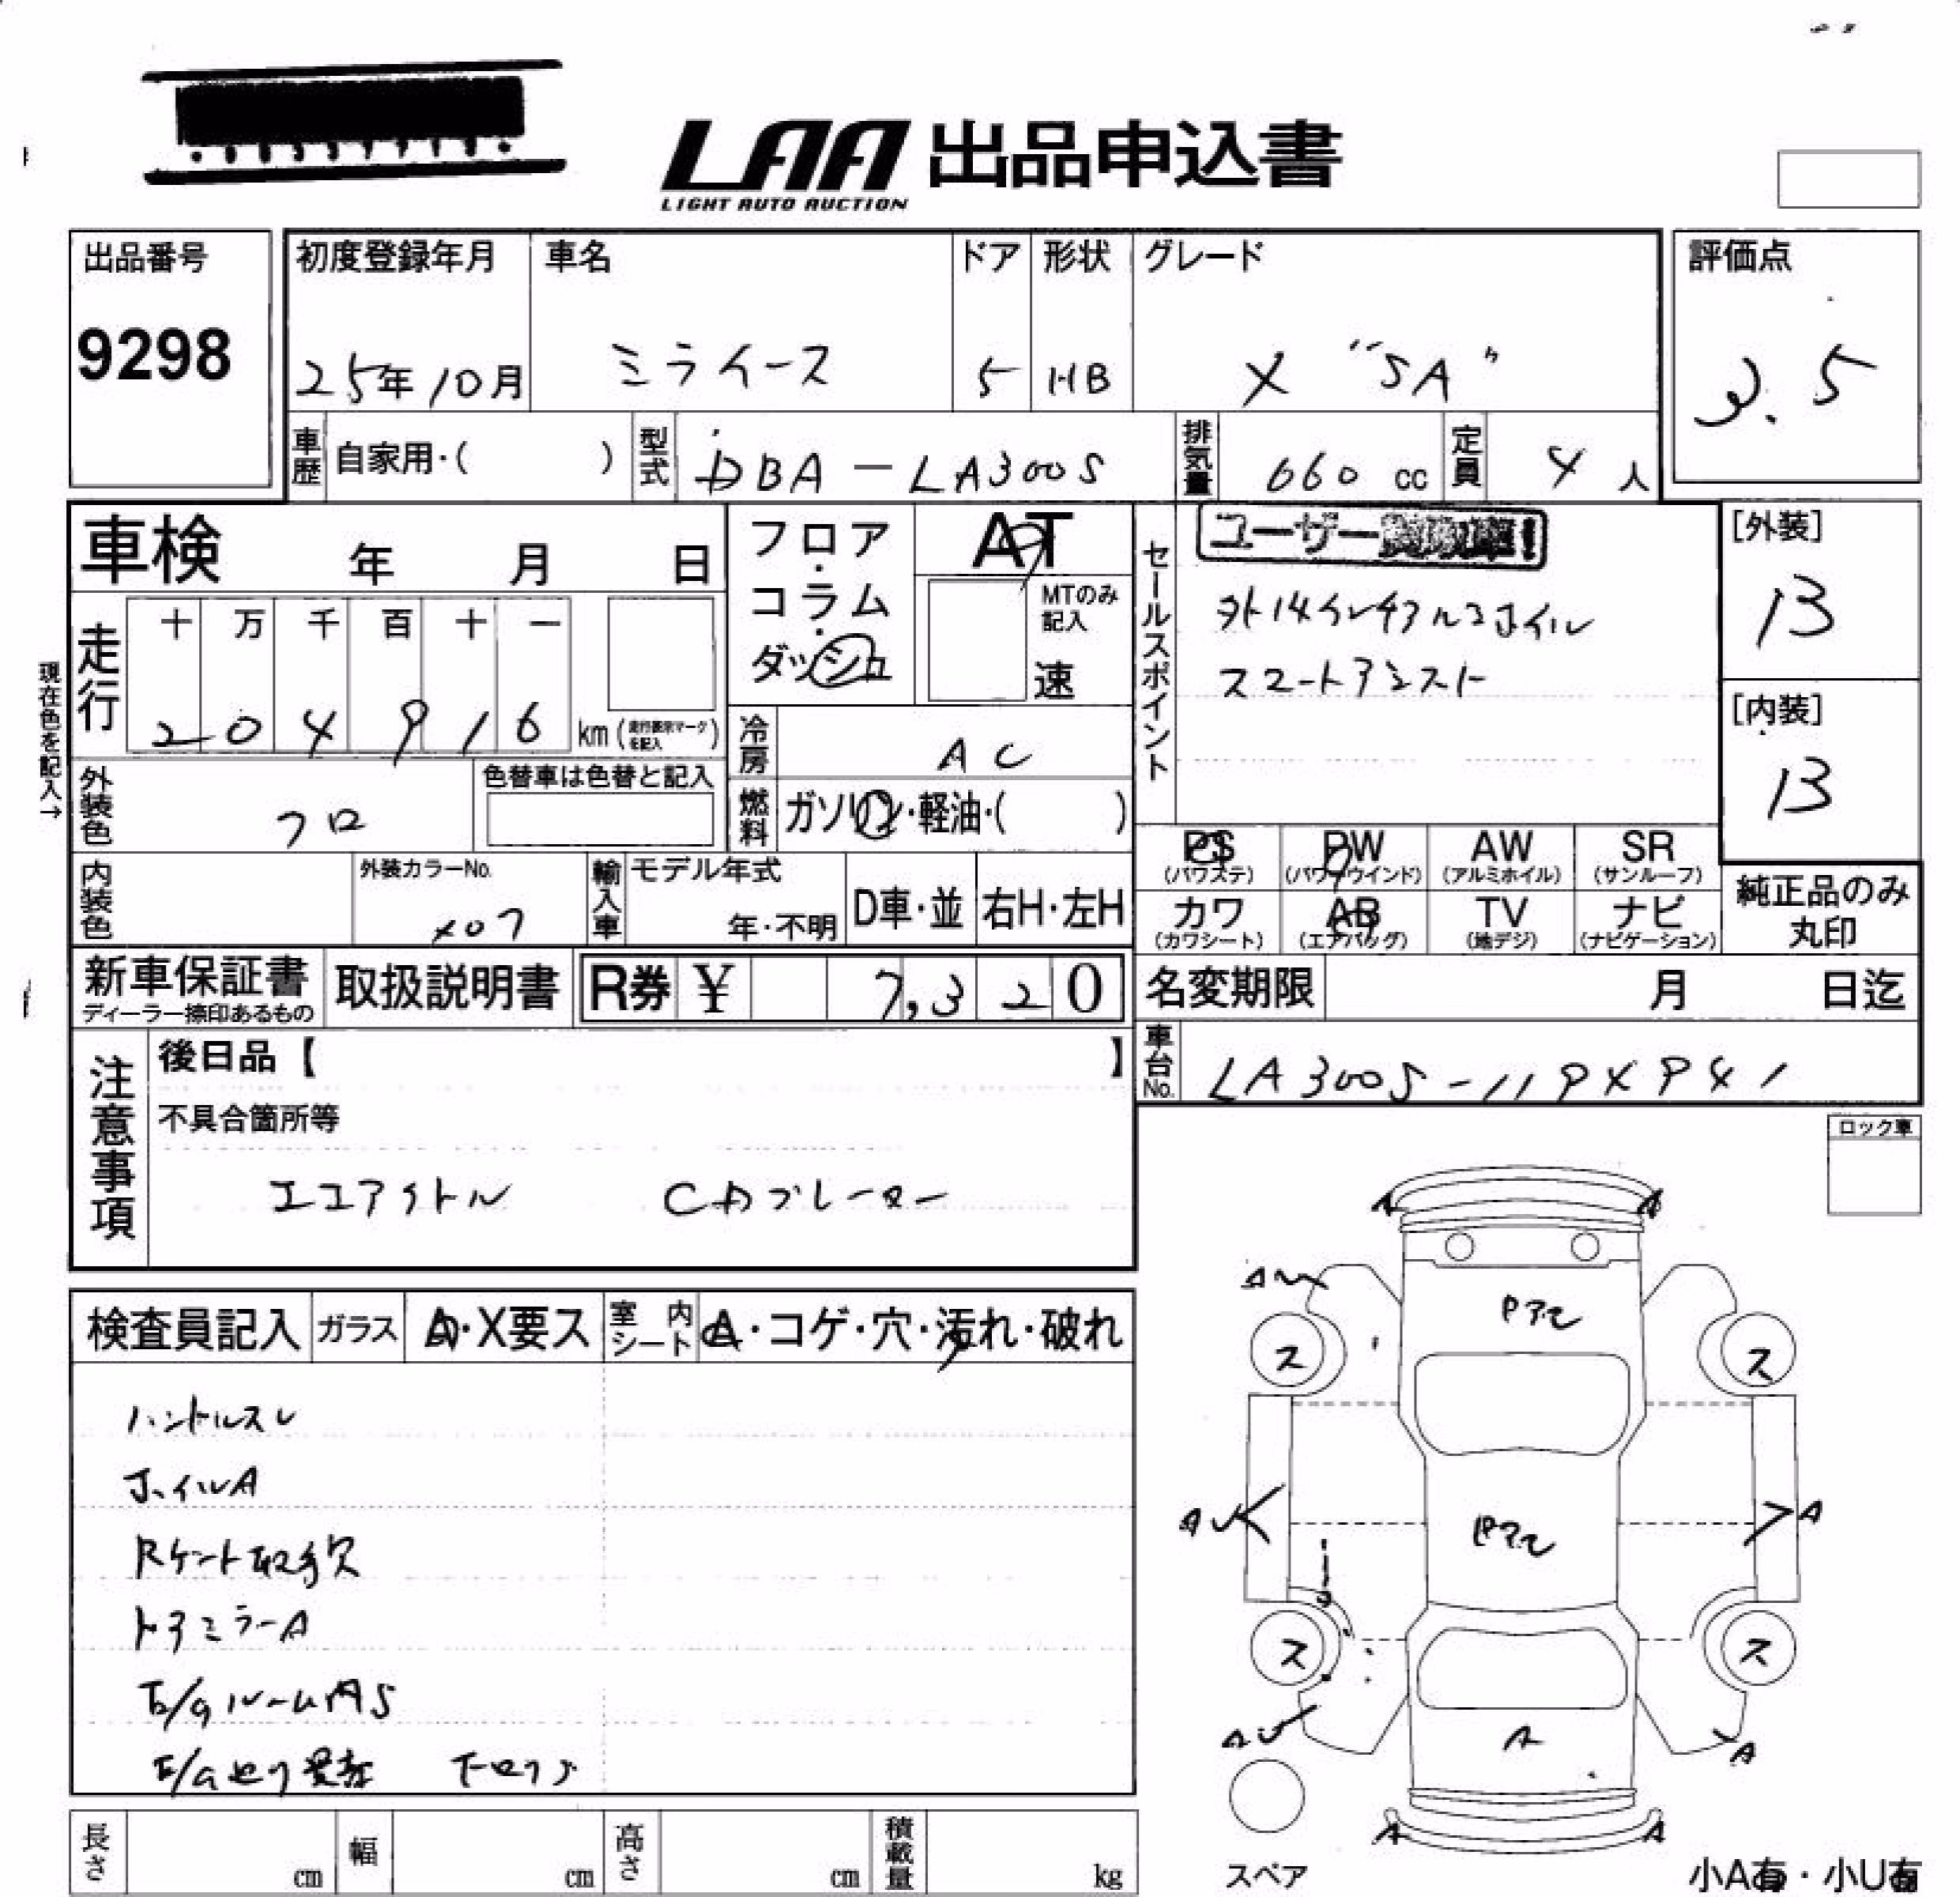 LAA 出品申込書
LIGHT AUTO AUCTION
出品番号
9298
初度登録年月 車名 ドア 形状 グレード
25年10月 ミライース 5 HB X "SA"
評価点
3.5
車歴 自家用・( ) 型式 DBA-LA300S 排気量 660 cc 定員 4人
車検 年 月 日
フロア・コラム・ダッシュ
AT
MTのみ記入
速
セールスポイント
ユーザー
スマートアシスト
[外装]
13
[内装]
13
現在色を記入→
走行 十 万 千 百 十 一
2 0 4 9 1 6 km (走行表示マークを記入)
冷房 AC
外装色 クロ 色替車は色替と記入
燃料 ガソリン・軽油・( )
内装色 外装カラーNo. X07 輸入車 モデル年式 年・不明 D車・並 右H・左H
PS (パワステ) PW (パワーウインド) AW (アルミホイル) SR (サンルーフ)
カワ (カワシート) AB (エアバッグ) TV (地デジ) ナビ (ナビゲーション)
純正品のみ
丸印
新車保証書
ディーラー捺印あるもの
取扱説明書 R券 ¥ 7,320
名変期限 月 日迄
車台No.
注意事項
後日品【 】
不具合箇所等
エコアイドル CDプレーヤー
ロック車
検査員記入 ガラス A・X要ス 室内シート A・コゲ・穴・汚れ・破れ
ハンドルスレ
ホイルA
ドアミラーA
E/gルームAS
長さ cm 幅 cm 高さ cm 積載量 kg
A A
ス ス
AU A
ス ス
AU A A
A A
スペア
小A有・小U有